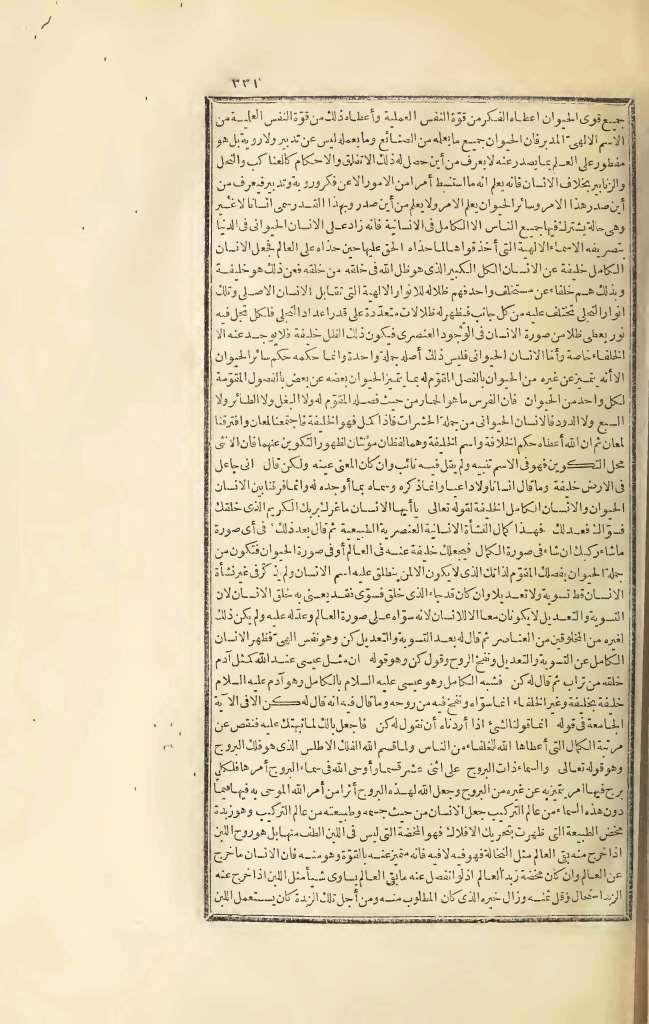 ٣٣١
جميع قوى الحيوان اعطاه الفكر من قوّة النفس العملية وأعطاه ذلك من قوّة النفس العلمية من
الاسم الالهى المدبر فان الحيوان جميع ما يعمله من الصنائع وما يعمله ليس عن تدبير ولا روية بل هو
مفطور على العلم بما يصدر عنه لا يعرف من أين حصل له ذلك الاتقان والاحكام كالعناكب والنحل
والزنابير بخلاف الانسان فانه يعلم انه ما استنبط أمرا من الامور الا عن فكر وروية وتدبير فيعرف من
أين صدر هذا الامر وسائر الحيوان يعلم الامر ولا يعلم من أين صدر وبهذا القدر سمى انسانا لا غير
وهى حالة يشترك فيها جميع الناس الا الكامل فى الانسانية فانه زاد على الانسان الحيوانى فى الدنيا
بتصريفه الاسماء الالهية التى أخذ قواها لما حذاه الحق عليها حين حذاه على العالم فجعل الانسان
الكامل خليفة عن الانسان الكل الكبير الذى هو ظل الله فى خلقه من خلقه فعن ذلك هو خليفة
وبذلك هم خلفاء عن مستخلف واحد فهم ظلاله للانوار الالهية التى تقابل الانسان الاصلى وتلك
انوار التجلى تختلف عليه من كل جانب فيظهر له ظلالات متعدّدة على قدر اعداد التجلى فلكل تجل فيه
نور يعطى ظلا من صورة الانسان فى الوجود العنصرى فيكون ذلك الظل خليفة فلا يوجد عنه الا
الخلفاء خاصة وأما الانسان الحيوانى فليس ذلك أصله جملة واحدة وانما حكمه حكم سائر الحيوان
الا أنه يتميز عن غيره من الحيوان بالفصل المقوّم له كما يتميز الحيوان بعضه عن بعض بالفصول المقوّمة
لكل واحد من الحيوان فان الفرس ما هو الحمار من حيث فصله المقوّم له ولا البغل ولا الطائر ولا
السبع ولا الدود فالانسان الحيوانى من جملة الحشرات فاذا كمل فهو الخليفة فاجتمعنا لمعان وافترقنا
لمعان ثم ان الله أعطاه حكم الخلافة واسم الخليفة وهما لفظان مؤنثان لظهور التكوين عنهما فان الانثى
محل التكوين فهو فى الاسم تنبيه ولم يقل فيه نائب وان كان المعنى عينه ولكن قال انى جاعل
فى الارض خليفة وما قال انسانا ولا داعيا وانما ذكره وسماه بما أوجده له وانما فرقنا بين الانسان
الحيوان والانسان الكامل الخليفة لقوله تعالى يا أيها الانسان ما غرّك بربك الكريم الذى خلقك
فسوّاك فعدلك فهذا كمال النشأة الانسانية العنصرية الطبيعية ثم قال بعد ذلك فى أى صورة
ما شاء ركبك ان شاء فى صورة الكمال فيجعلك خليفة عنه فى العالم أو فى صورة الحيوان فتكون من
جملة الحيوان بفصلك المقوّم لذاتك الذى لا يكون الا لمن ينطلق عليه اسم الانسان ولم يذكر فى غير نشأة
الانسان قط تسوية ولا تعديلا وان كان قد جاء الذى خلق فسوّى فقد يعنى به خلق الانسان لان
التسوية والتعديل لا يكونان معا الا للانسان لانه سوّاه على صورة العالم وعدّله عليه ولم يكن ذلك
لغيره من المخلوقين من العناصر ثم قال له بعد التسوية والتعديل كن وهو نفس الهى فظهر الانسان
الكامل عن التسوية والتعديل ونفخ الروح وقول كن وهو قوله ان مثل عيسى عند الله كمثل آدم
خلقه من تراب ثم قال له كن فشبه الكامل وهو عيسى عليه السلام بالكامل وهو آدم عليه السلام
خليفة بخليفة وغير الخلفاء انما سوّاه ونفخ فيه من روحه وما قال فيه انه قال له كن الا فى الآية
الجامعة فى قوله انما قولنا لشئ اذا أردناه أن نقول له كن فاجعل بالك لما نبهتك عليه فنقص عن
مرتبة الكمال التى أعطاها الله للخلفاء من الناس ولما قسم الله الفلك الاطلس الذى هو فلك البروج
وهو قوله تعالى والسماء ذات البروج على اثنى عشر قسما وأوحى الله فى سماء البروج أمرها فلكل
برج فيها أمر يتميز به عن غيره من البروج وجعل الله لهذه البروج أثرا من أمر الله الموحى به فيها فيما
دون هذه السماء من عالم التركيب جعل الانسان من حيث جسمه وطبيعته من عالم التركيب وهو زبدة
مخض الطبيعة التى ظهرت بتحريك الافلاك فهو المخضة التى ليس فى اللبن الطف منها بل هو روح اللبن
اذا خرج منه بقى العالم مثل النخالة فهو فيه لا فيه فانه متميز عنه بالقوّة وهو منه فان الانسان ما خرج
عن العالم وان كان مخضة زبدة العالم اذ لو انفصل عنه ما بقى العالم يساوى شيأ مثل اللبن اذا خرج عنه
الزبد استحال وقل ثمنه وزال خيره الذى كان المطلوب منه ومن أجل تلك الزبدة كان يستعمل اللبن